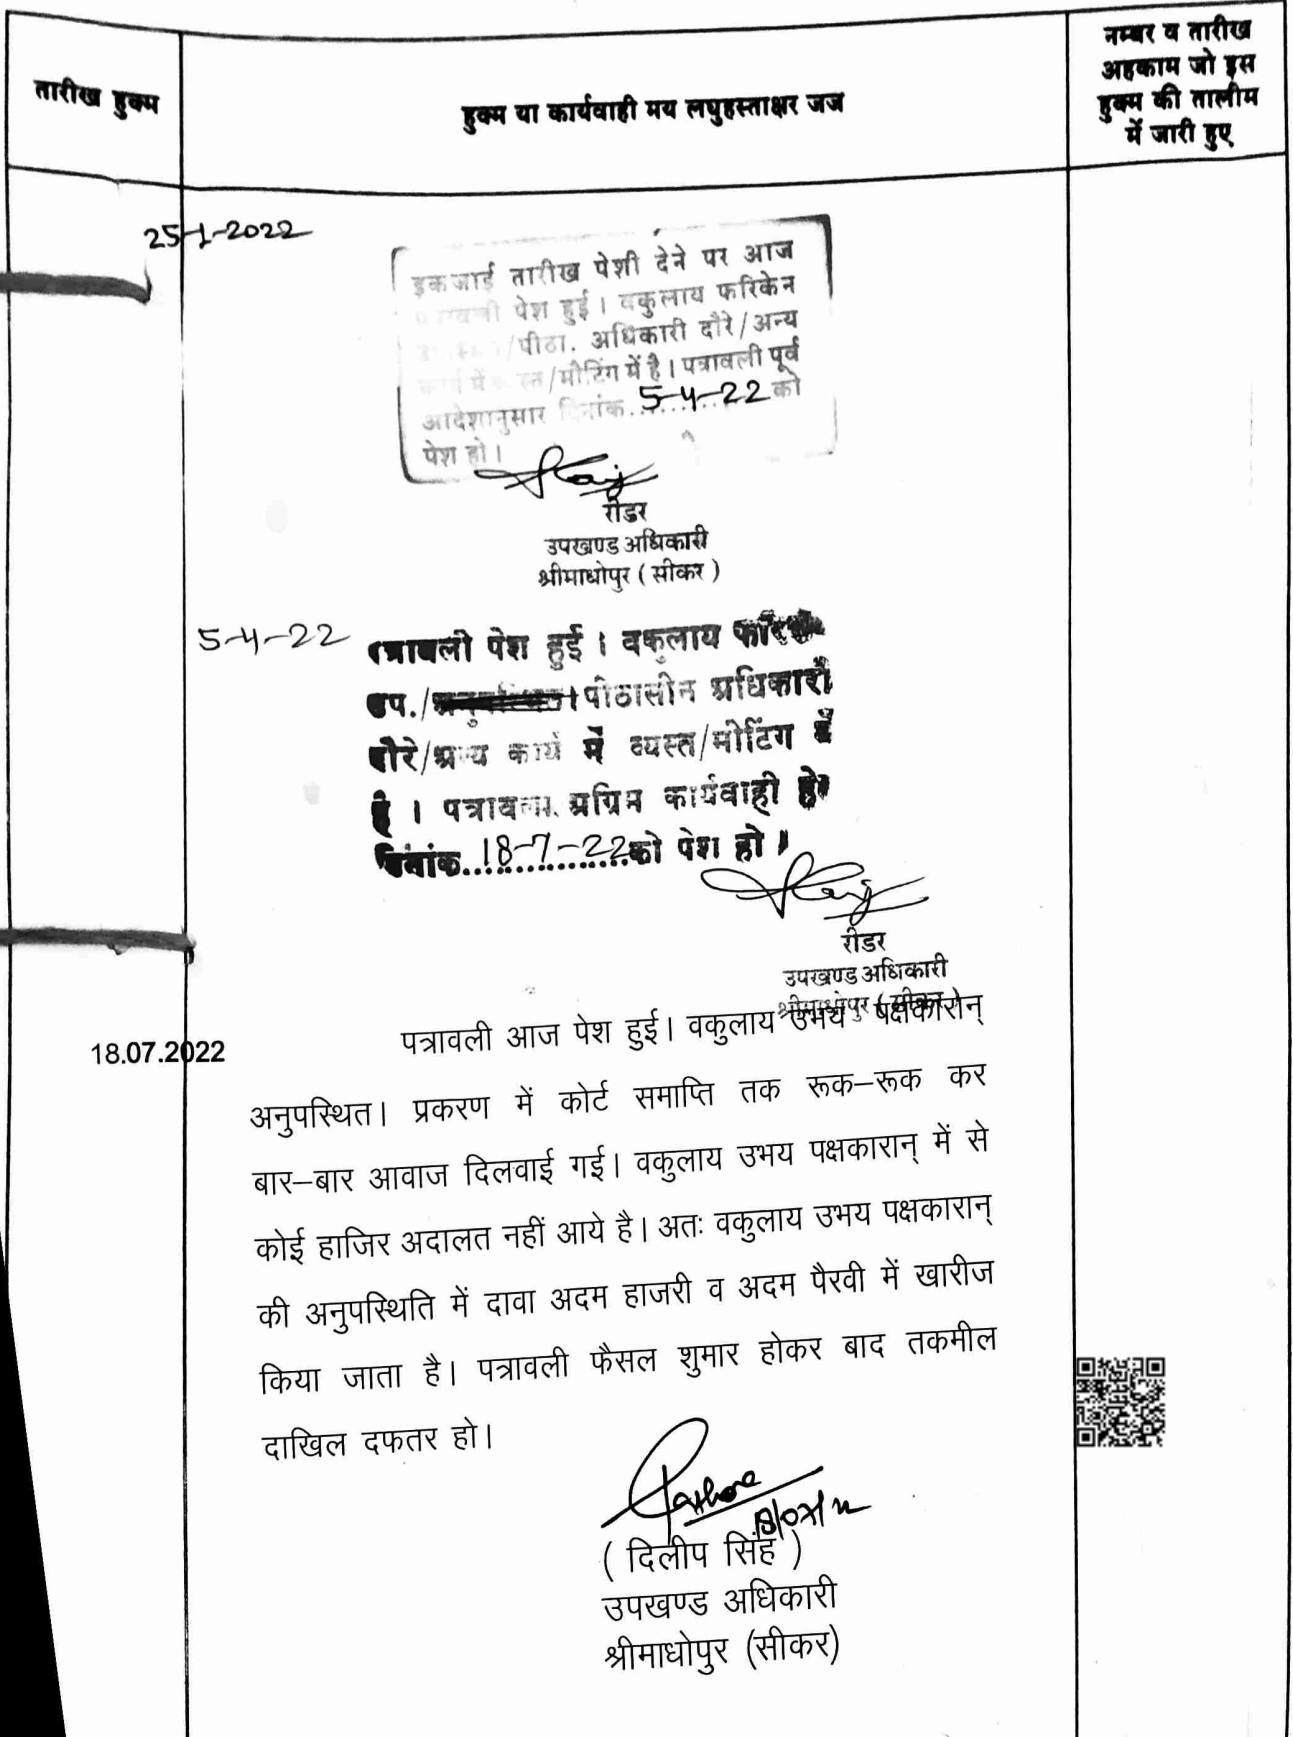 तारीख हुक्म
हुक्म या कार्यवाही मय लघुहस्ताक्षर जज
नम्बर व तारीख
अहकाम जो इस
हुक्म की तालीम
में जारी हुए
25-1-2022
इकजाई तारीख पेशी देने पर आज
पेश हुई। वकुलाय फरिकेन
/पीठा. अधिकारी दौरे/अन्य
कार्य में /मीटिंग में है। पत्रावली पूर्व
आदेशानुसार दिनांक..5-4-22 को
पेश हो।
रीडर
उपखण्ड अधिकारी
श्रीमाधोपुर ( सीकर )
5-4-22
पत्रावली पेश हुई। वकुलाय
उप./ पीठासीन अधिकारी
दौरे/अन्य कार्य में व्यस्त/मीटिंग में
है। पत्रावली अग्रिम कार्यवाही हेतु
दिनांक..18-7-22..को पेश हो।
रीडर
उपखण्ड अधिकारी
श्रीमाधोपुर ( सीकर )
18.07.2022
पत्रावली आज पेश हुई। वकुलाय उभय पक्षकारान्
अनुपस्थित। प्रकरण में कोर्ट समाप्ति तक रूक–रूक कर
बार–बार आवाज दिलवाई गई। वकुलाय उभय पक्षकारान् में से
कोई हाजिर अदालत नहीं आये है। अतः वकुलाय उभय पक्षकारान्
की अनुपस्थिति में दावा अदम हाजरी व अदम पैरवी में खारीज
किया जाता है। पत्रावली फैसल शुमार होकर बाद तकमील
दाखिल दफतर हो।
( दिलीप सिंह )
उपखण्ड अधिकारी
श्रीमाधोपुर (सीकर)